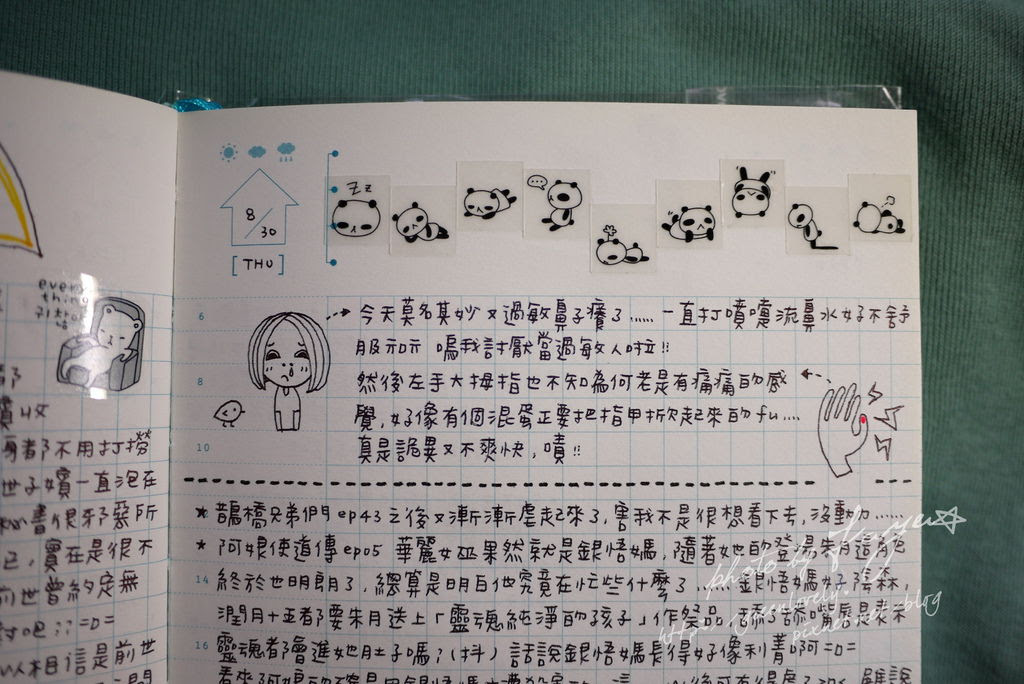 every
thing
都
費收
身都不用打撈
世子嬪一直泡在
書很邪惡所
己,實在是很不
前世曾約定無
討吧??=D=
以相信是前世
8/30
[THU]
Zz
6
今天莫名其妙又過敏鼻子癢了......一直打噴嚏流鼻水好不舒
服 嗚我討厭當過敏人啦!!
8
然後左手大拇指也不知為何老是有痛痛的感
覺,好像有個混蛋正要把指甲掀起來的fu....
10
真是詭異又不爽快,嘖!!
★ 鵲橋兄弟們ep43之後又漸漸虐起來了,害我不是很想看下去,沒動力......
★ 阿娘使道傳ep05 華麗女巫果然就是銀悟媽,隨著她的登場朱道角色
14
終於也明朗了,總算是明白他究竟在忙些什麼了...銀悟媽好陰森,
潤月十五都要朱月送上「靈魂純淨的孩子」作祭品,舔了舔嘴唇是表示
16
靈魂都隨進她肚子嗎?(抖) 話說銀悟媽長得好像利菁啊=D=
photo by
pixnet.net/blog